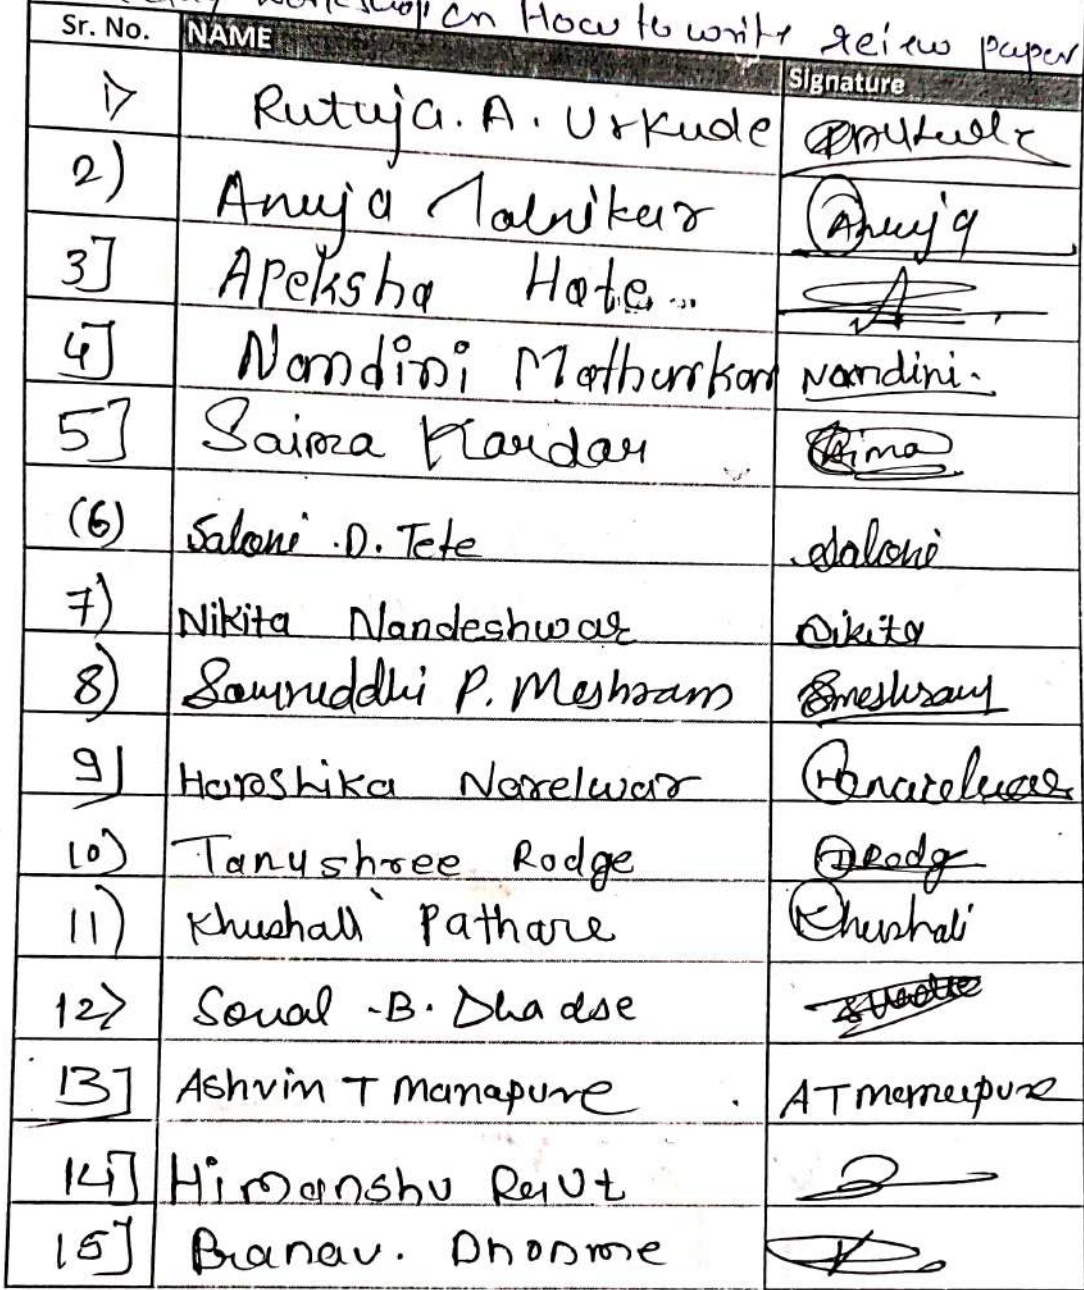 workshop on How to write reiew paper
Sr. No. NAME Signature
1) Rutuja. A. Urkude
2) Anuja Talnikar Anuja
3] Apeksha Hate..
4] Nandini Mathurkar Nandini.
5] Saima Kardar Saima
(6) Saloni .D. Tete Saloni
7) Nikita Nandeshwar Nikita
8) Samruddhi P. Meshram Smeshram
9] Harshika Narelwar Hnarelwar
10) Tanushree Rodge TRodge
11) Khushali Pathare Khushali
12) Sonal -B. Dhadse
13] Ashvin T Manapure . ATmanapure
14] Himanshu Raut
15] Pranav. Dhonme